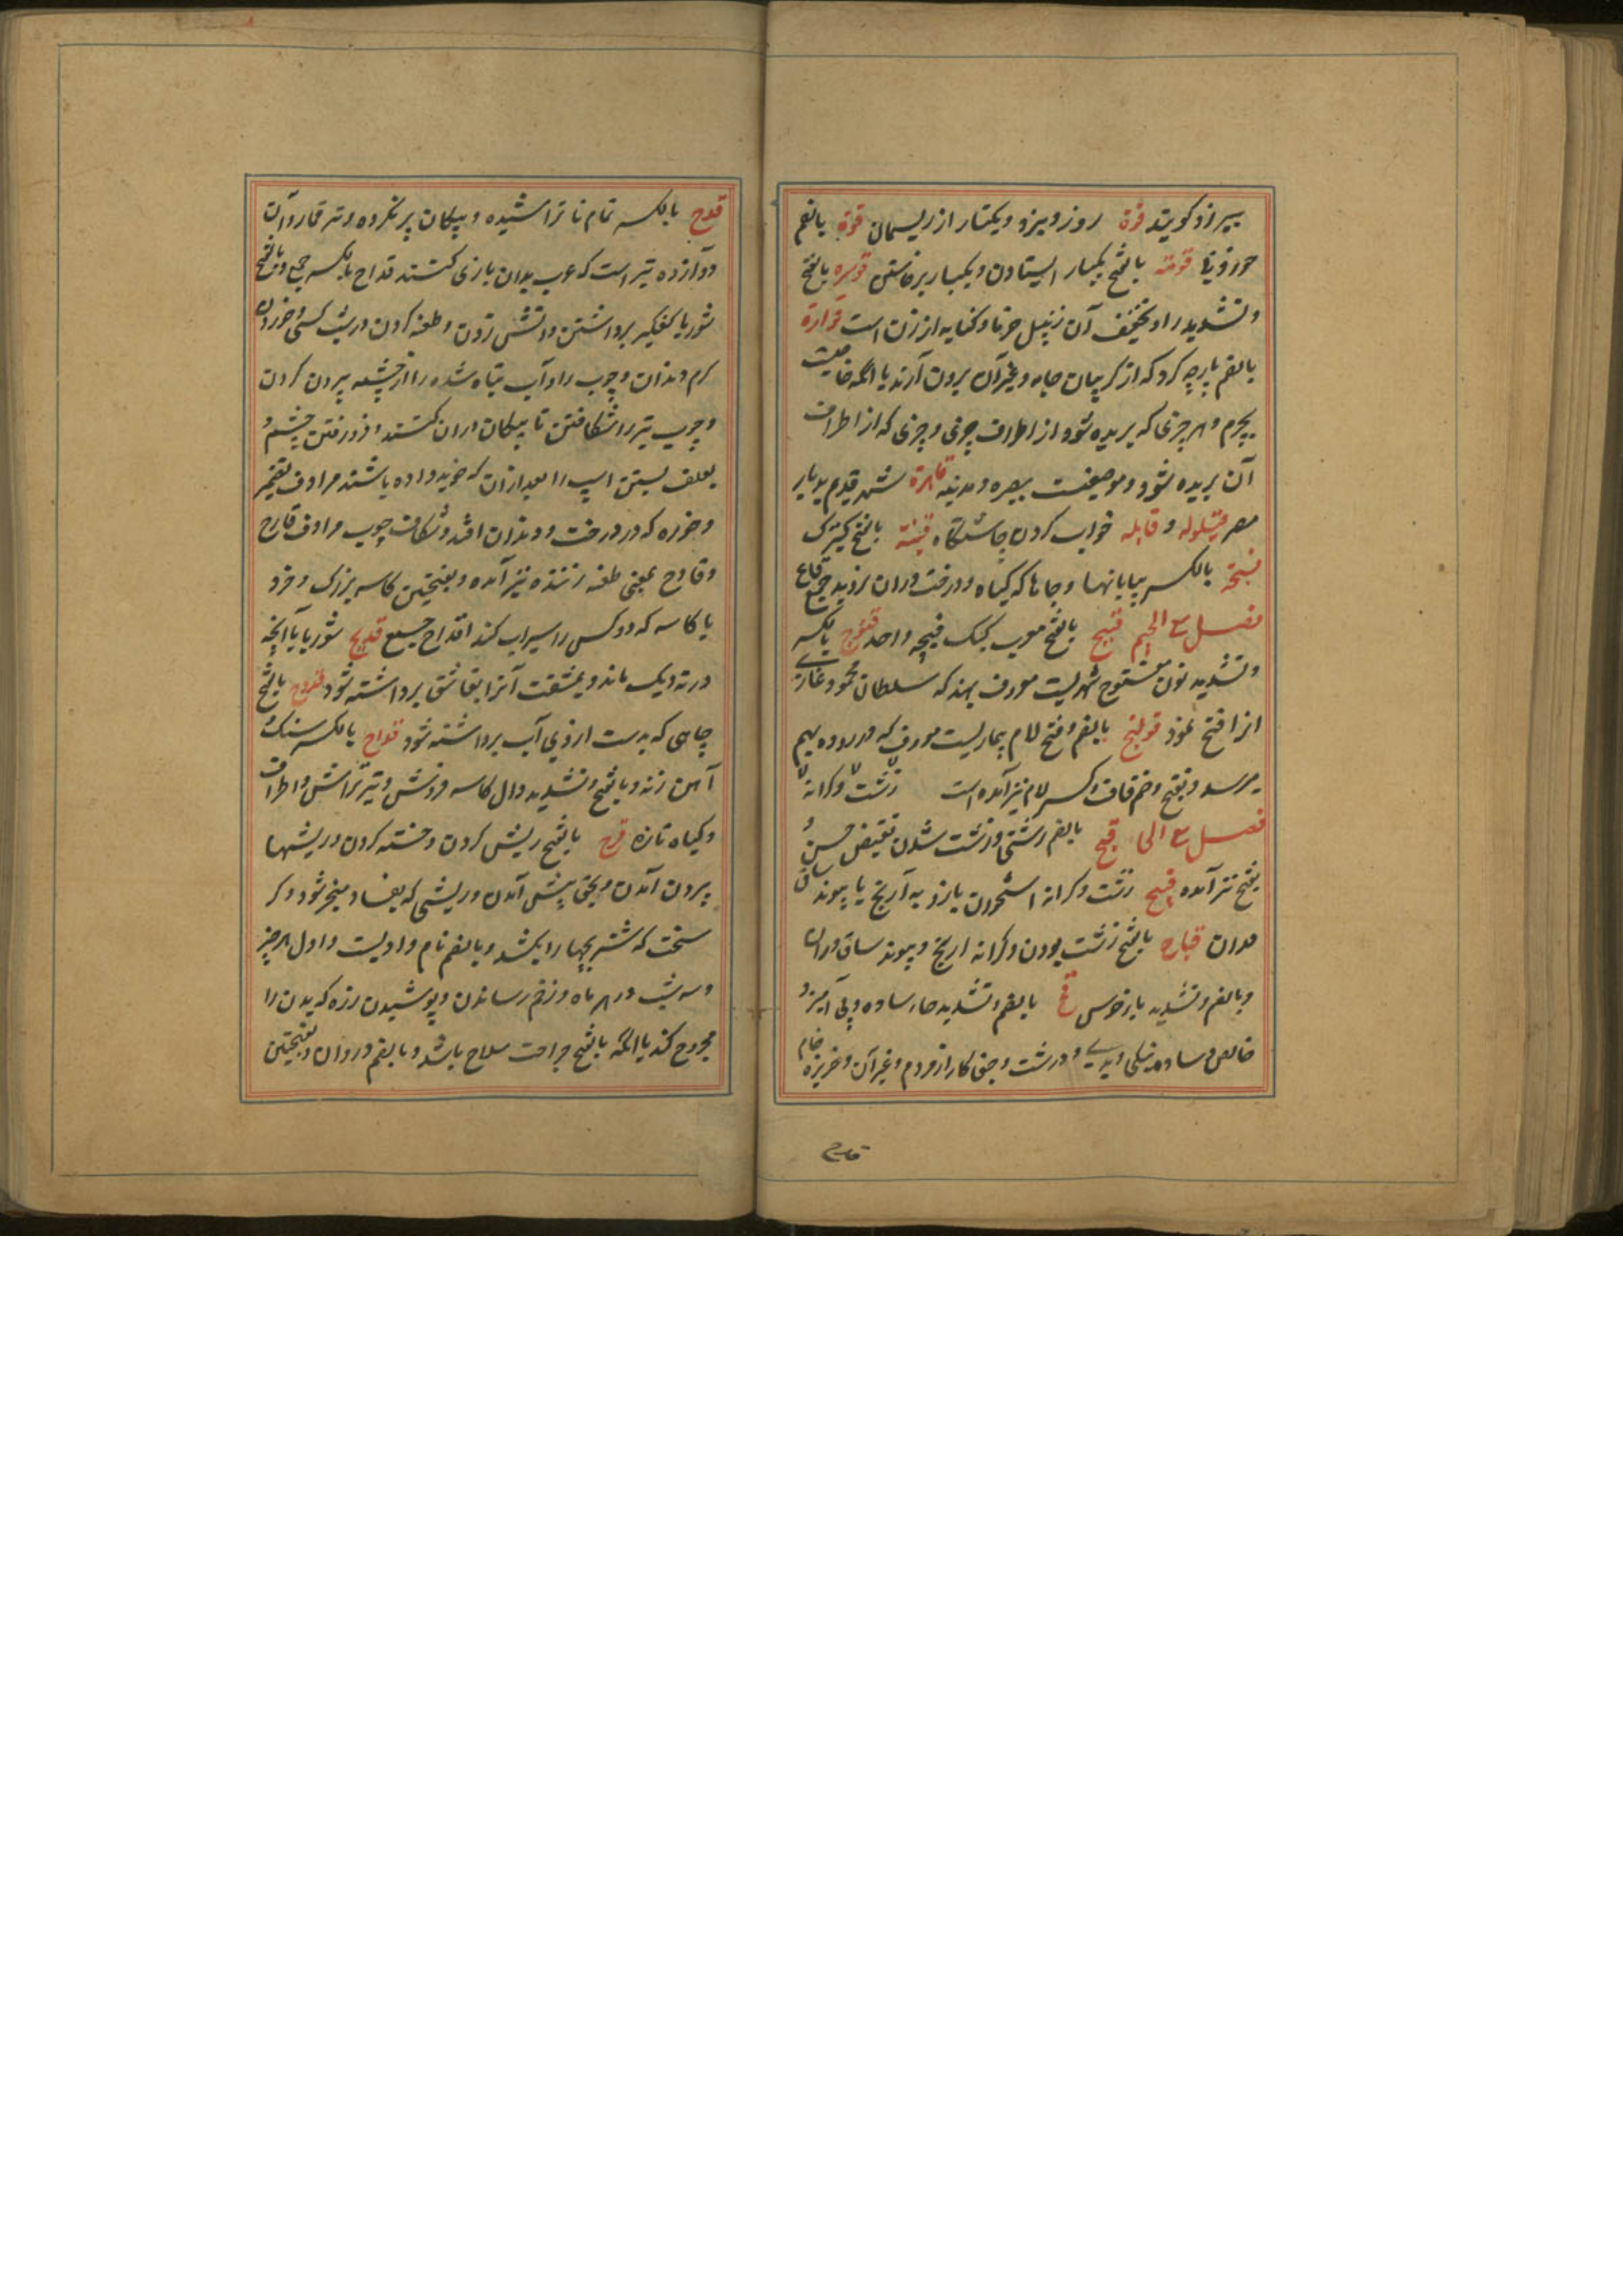 بیراز کویند قوة روز و نیرو و یکتار از ریسمان قوة بالضم
قومة بالفتح یکبار ایستادن و یکبار برخاستن قوسره بالفتح
و تشدید را و تخفیف آن زنبیل خرما و کنایه از زن است قوارة
بالضم پارچه کرد که از کریبان جامه و غیر آن برون آرند یا آنکه خاصیت
بچرم و هر چیزی که بریده شود از اطراف چیزی و چیزی که از اطراف
آن بریده شود و موضعیست ببصره و مدینه قاهرة شهر قدیم بدیار
مصر قیلوله و قایله خواب کردن چاشتگاه قینة بالفتح کنیزک
بالکسر بیابانها و جاها که کیاه و درخت دران نروید جمع قاع
فصل مع الجیم قبیج بالفتح معرب کبک قبیجه واحد قنوج بالکسر
و تشدید نون مفتوح شهریست معروف بهند که سلطان محمود غازی
انرا فتح نمود قولنج بالضم و فتح لام بیماریست معروف که در روده بهم
میرسد و بفتح و ضم قاف و کسر لام نیز آمده است زشت و کرانه
فصل مع الحا قبح بالضم زشتی و زشت شدن نقیض حسن و
بفتح نیز آمده قبیح زشت و کرانه استخوان بازو به آرنج یا پیوند ساق
و ران قباح بالفتح زشت بودن و کرانه ارنج و پیوند ساق و ران
و بالضم و تشدید با خرس قح بالضم و تشدید حاء ساده و بی آمیز و
خالص و ساده نیکی و بدی و درشت و جفی کار از مردم و غیر آن و خربزه خام
قدح
قدح بالکسر تمام نا تراشیده و پیکان پر نکرده و تیر قمار و آن
دوازده تیر است که عرب بدان بازی کنند قداح بالکسر جمع و بالفتح
شوربا بکفکیر برداشتن و آتش زدن و طعنه کردن در نسب کسی و خوردن
کرم دندان و چوب را و آب تباه شده را از چشمه بیرون کردن
و چوب تیر را شکافتن تا پیکان دران کنند و فرو رفتن چشم و
بعلف بستن اسپ را بعد ازان که خوید داده باشند مرادف تضمیر
و خوره که در درخت و دندان افتد و شکاف چوب مرادف قارح
و قادح بمعنی طعنه زننده نیز آمده و بفتحتین کاسه بزرک و خرد
یا کاسه که دو کس را سیراب کند اقداح جمع قدیح شوربا یا آنچه
در ته دیک ماند و بمشقت آنرا بقاشق برداشته شود قدوح بالفتح
چاهی که بدست ازوی آب برداشته شود قداح بالکسر سنک و
آهن زنه و بالفتح و تشدید دال کاسه فروش و تیر تراش و اطراف
و کیاه تازه قرح بالفتح ریش کردن و خسته کردن و ریشها
بیرون آمدن و بحق پیش آمدن و ریشی که بفساد منجر شود و کر
سخت که شتر بچها را بکشد و بالضم نام وادیست و اول هر چیز
و سه شب در هر ماه و زخم رساندن و پوشیدن زره که بدن را
مجروح کند یا آنکه بالفتح جراحت سلاح باشد و بالضم درد آن و بفتحتین